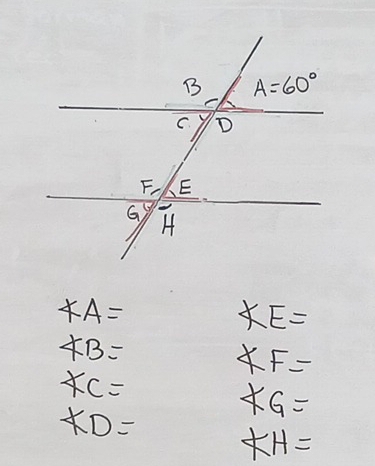 B A=60°
C D
F E
G H
∡A=
∡B=
∡C=
∡D=
∡E=
∡F=
∡G=
∡H=